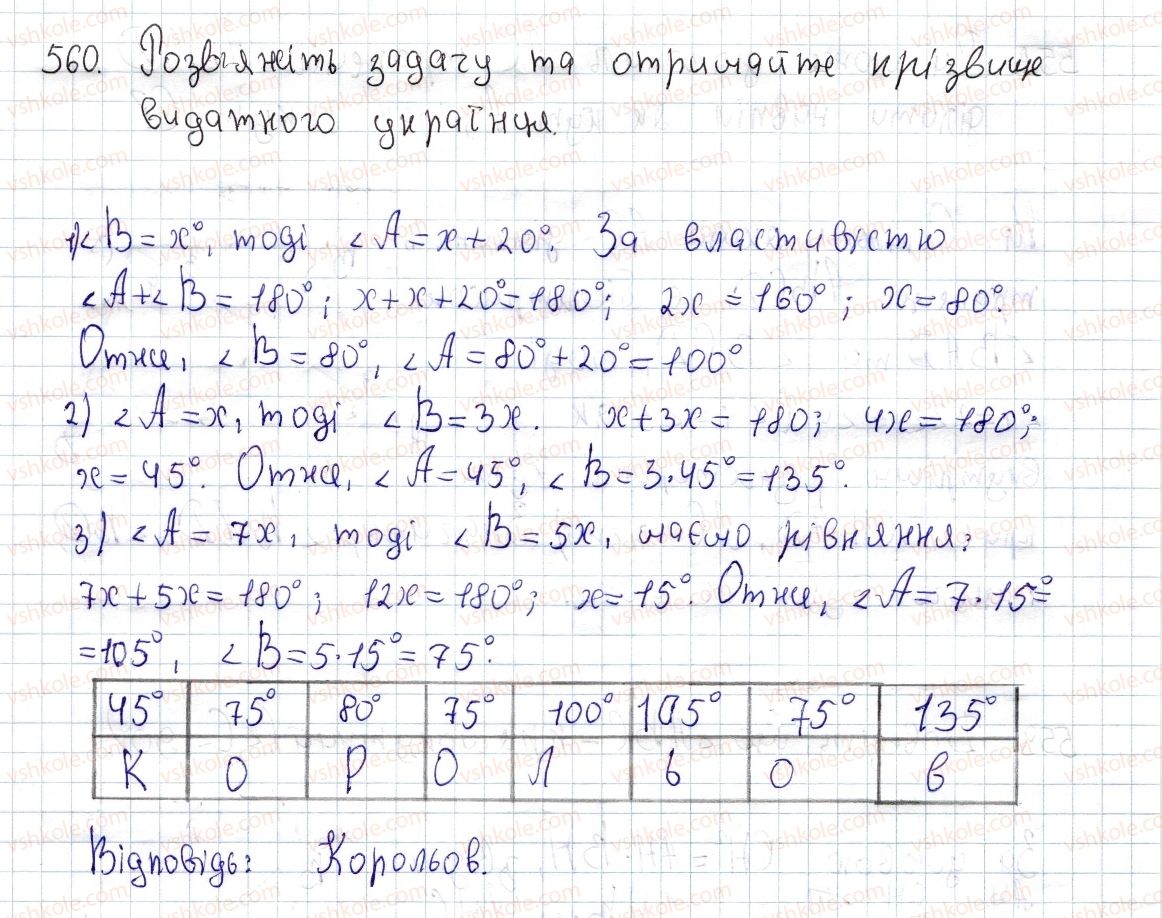 560. Розв'яжіть задачу та отримайте прізвище
видатного українця.
1) < B = x°, тоді < A = x + 20°. За властивістю
< A + < B = 180°; x + x + 20° = 180°; 2x = 160°; x = 80°.
Отже, < B = 80°, < A = 80° + 20° = 100°
2) < A = x, тоді < B = 3x. x + 3x = 180; 4x = 180°;
x = 45°. Отже, < A = 45°, < B = 3·45° = 135°.
3) < A = 7x, тоді < B = 5x, маємо рівняння:
7x + 5x = 180°; 12x = 180°; x = 15°. Отже, < A = 7·15° =
= 105°, < B = 5·15° = 75°.
45° 75° 80° 75° 100° 105° 75° 135°
К О Р О Л Ь О В
Відповідь: Корольов.